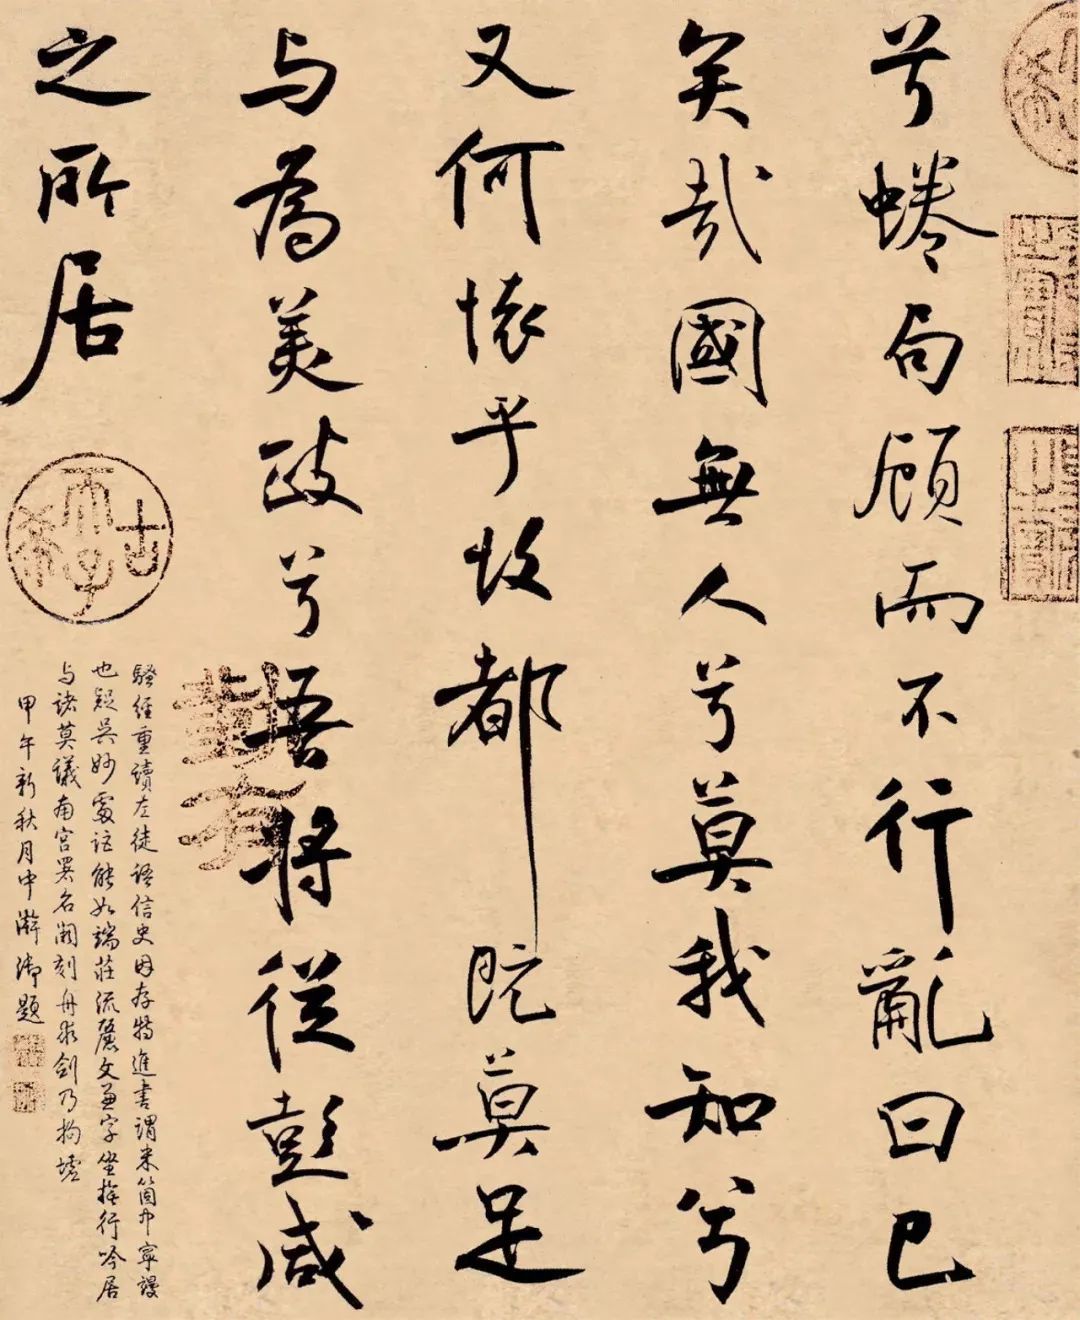 兮蜷局顧而不行亂曰已
矣哉國無人兮莫我知兮
又何懷乎故都既莫足
与為美政兮吾將從彭咸
之所居
騷經重讀左徒語信史因存特進書謂米箇中寧謾
也疑吳妙處詎能如端莊流麗文兼字坐挹行吟居
与諸莫議南宮署名闕刻舟求劍乃拘墟
甲午新秋月中澣御題
古希天子